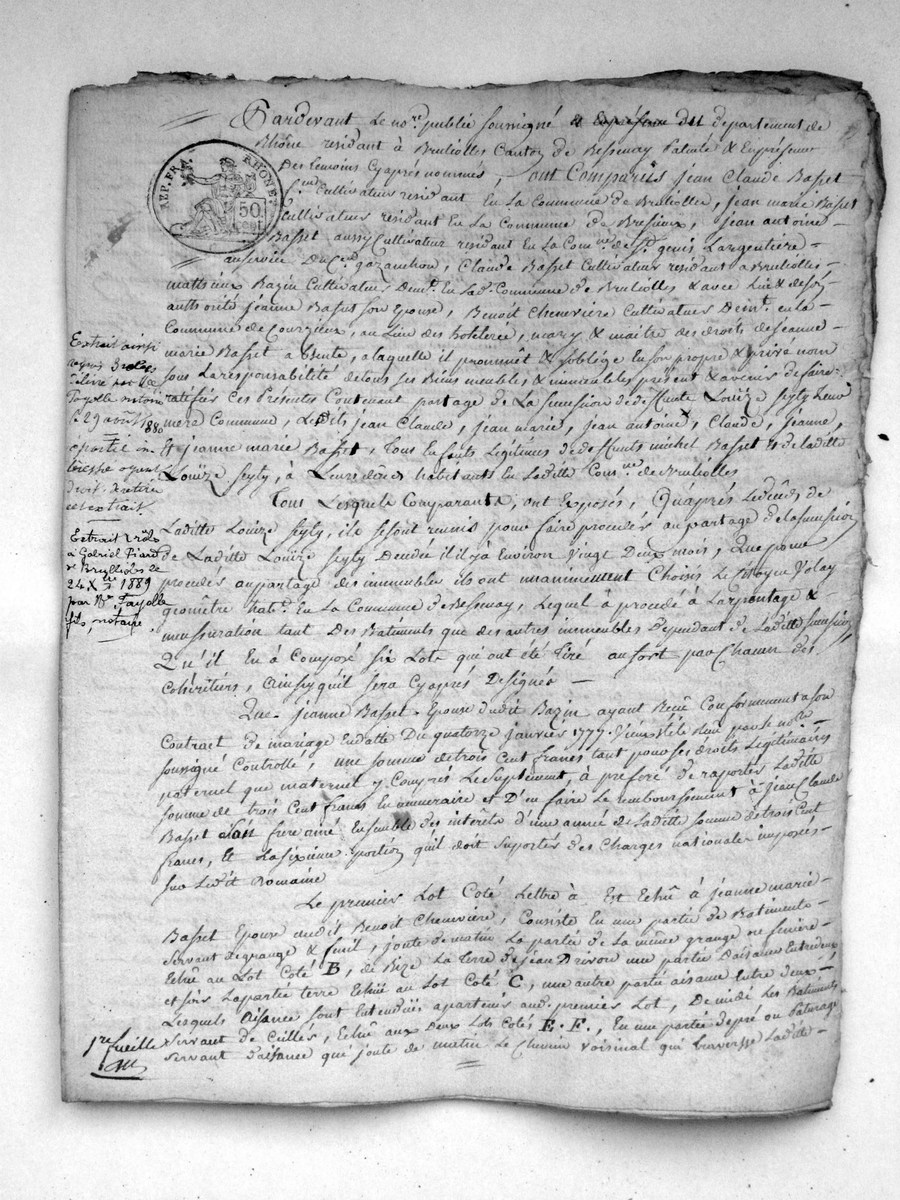 Pardevant Le no.re publie soussigné DU département de
Rhône residant à Brullioles Canton de Bessenay Patenté & En présence
Des temoins Cy aprés nommés, ont Comparûs jean Claude Basset
Cultivateur residant En La Commune de Brullioles, jean marie Basset
Cultivateur residant En La Commune de Brusieux, jean antoine
Basset aussy Cultivateur residant En La Com.ne de S.t genis Largentière
au service Du C.en gazanchon, Claude Basset Cultivateur residant a Brullioles
matthieux Bazin Cultivateur Dem.t En La d. Commune de Brullioles & avec Lui & de son
authorité jeanne Basset Son Epouse, Benoît Cheneviere Cultivateur Dem.t en la
Commune de Courzieux, au Lieu des hoteleries, mary & maitre des droits de jeanne
marie Basset absente, a laquelle il promet & soblige En son propre & privé nom
sous La responsabilité de tous ses Biens meubles & immeubles présent & avenir de faire
ratifier Ces Presentes Contenant partage de La sucession de deffunte Louize Seyty Leur
mere Commune, Lesdits jean Claude, jean marie, jean antoine, Claude, jeanne,
& jeanne marie Basset, Tous Enfants Legitimes de deffunts michel Basset & de laditte
Louïze Seyty, à Leurs décés habitants En Laditte Com.ne de Brullioles
Tous Lesquels Comparants, ont Exposés, Qu'aprés Le décés de
Laditte Louize Seyty, ils se sont reunis pour faire proceder au partage de la sucession
de Laditte Louïze Seyty Decedée il il ja Environ Vingt Deux mois, Que pour
proceder au partage des immeubles ils ont unanimement Choisis Le Citoyen Volay
géomètre hab.t En La Commune de Bessenay, Lequel à procedé à Larpentage &
mensuration tant Des Batiments que des autres immeubles Dependant de Laditte sucession,
Qu'il En à Composé six Lots qui ont été tiré au sort par Chacun des
Cohéritiers, Ainsy quil sera Cy aprés Designés —
Que jeanne Basset Epouse dudit Bazin ayant Reçû Conformement a son
Contract de mariage En datte Du quatorze janvier 1777. Vieux stile Reçu par le no.re
soussigné Controllé, une somme de trois Cent francs tant pour ses droits Legitimaires
paternel que maternel y Compris Le suplement, à preferé de raporter Laditte
somme de trois Cent francs En numeraire et D'en faire Le remboursement à jean Claude
Basset son frere ainé Ensemble des interets d'une année de Laditte somme de trois Cent
francs, Et La sixième portion quil doit suporter des Charges nationale imposés
sur Ledit Romaine
Le premier Lot Coté Lettre A Est Echû à jeanne marie
Basset Epouse dudit Benoit Cheneviere, Consiste En une partie de Batiments
servant de grange & fenil, joute de matin La partie de La même grange ou feniere
Echûe au Lot Coté B, de Bize La Terre de jean Drivon une partie Daisance Entredeux
et soir La partie terre Echûe au Lot Coté C, une autre partie aisance Entre deux,
Lesquels Aisance sont Entendües apartenir aud. premier Lot, De midi Les Batiments
servant de Cuilles, Echûe aux deux Lots Cotés E. F., En une partie de pré ou Paturage
servant d'aisance qui joute de matin Le Chemin voisinal qui traverse Laditte
AZP. FRA.
RHONE
50
cent.
Extrait ainsi
requis
délivré par Me
Fayolle notaire
le 29 avril 1880
droit
cet extrait.
Extrait
à Gabriel Piard
de Brullioles le
24 Xbre 1889
par Me Fayolle
fils, notaire
1re feuille